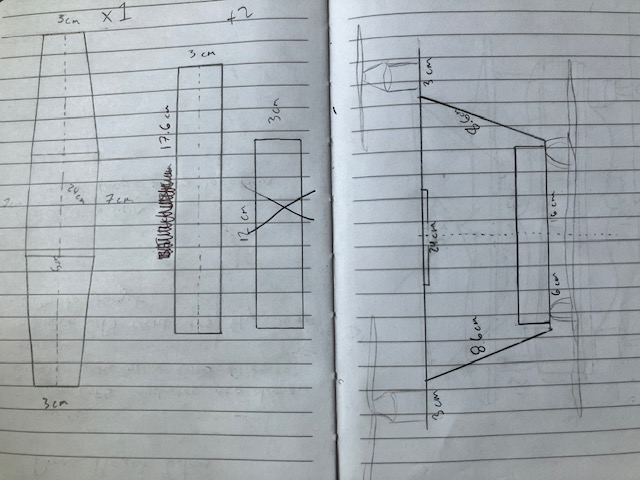 3cm
5cm
24cm
3cm
x 1
7cm
17.6 cm
3 cm
12 cm
3cm
3 cm
24cm
3 cm
8.6cm
8.6cm
6cm
16cm